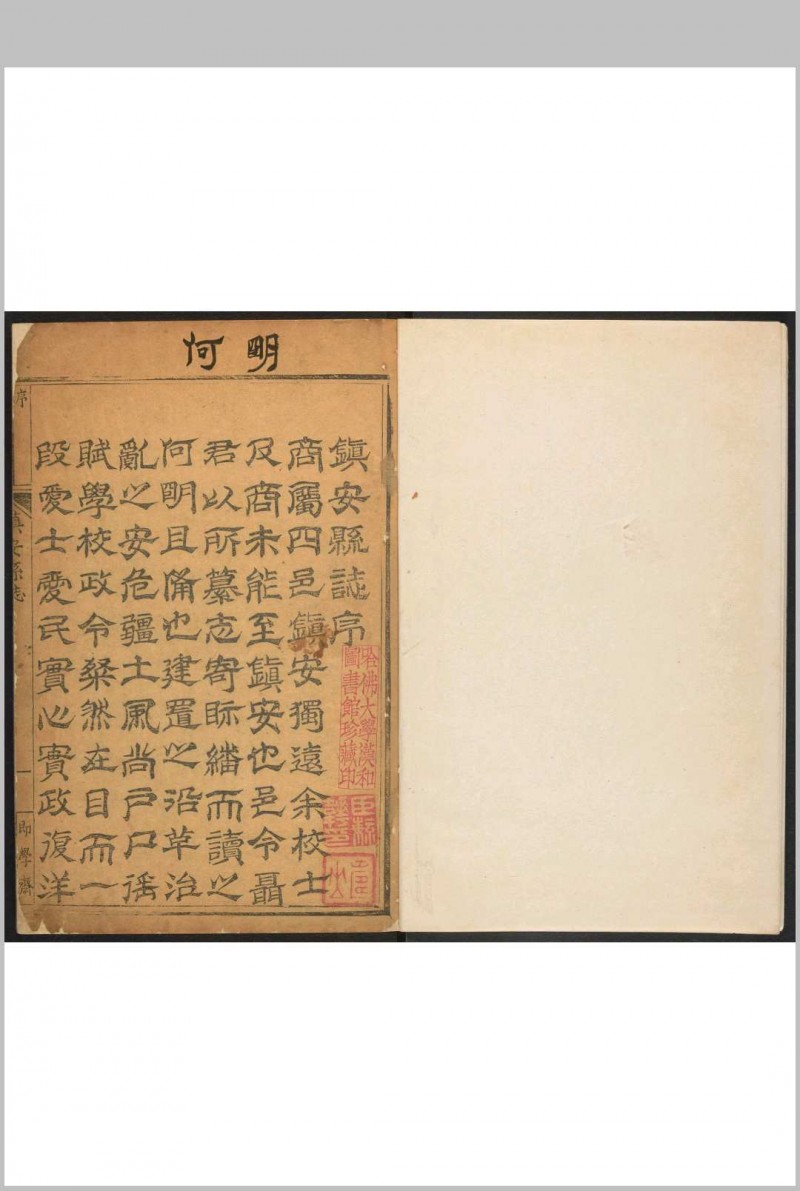 明何
鎮安縣誌序
商屬四邑鎮安獨遠余校士
及商未能至鎮安也邑令聶
君以所纂志寄眎繙而讀之
何明且備也建置之沿革治
亂之安危疆土風尚戶口徭
賦學校政令粲然在目而一
段愛士愛民實心實政復洋
哈佛大學漢和
圖書館珍藏印
序
鎮安縣志
一
即學齋